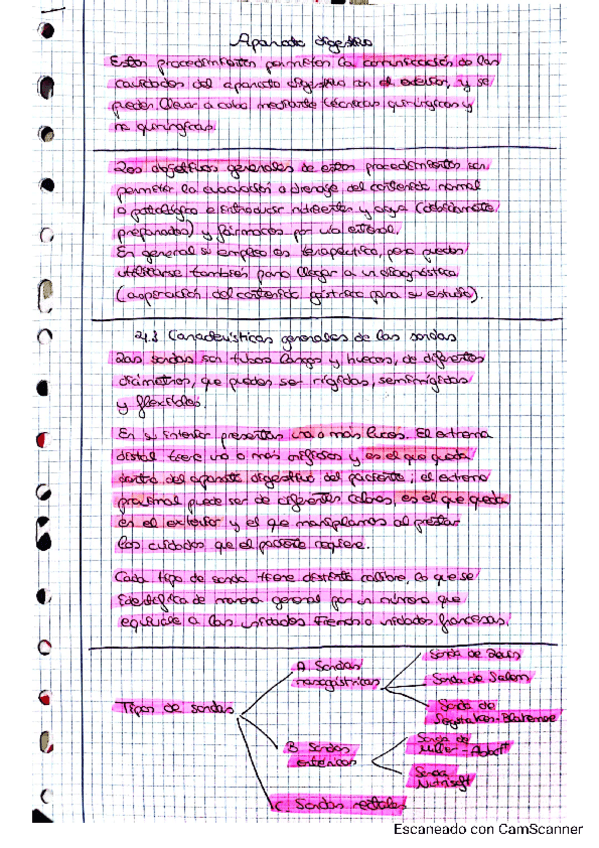 Aparato digestivo
Estos procedimientos permiten la comunicación de las
cavidades del aparato digestivo con el exterior, y se
pueden llevar a cabo mediante técnicas quirúrgicas y
no quirúrgicas.
Los objetivos generales de estos procedimientos son
permitir la evacuación o drenaje del contenido normal
o patológico e introducir nutrientes y agua (debidamente
preparados) y fármacos por vía enteral.
En general su empleo es terapéutico, pero puede
utilizarse también para llegar a un diagnóstico
(recuperación del contenido gástrico para su estudio).
Características generales de las sondas
Las sondas son tubos largos y huecos, de diferentes
diámetros, que pueden ser rígidas, semirrígidas
y flexibles.
En su interior presentan una o más luces. El extremo
distal tiene uno o más orificios y es el que queda
dentro del aparato digestivo del paciente; el extremo
proximal puede ser de diferentes colores, es el que queda
en el exterior y el que manipulamos al prestar
los cuidados que el paciente requiere.
Cada tipo de sonda tiene distinto calibre, lo que se
identifica de manera general por un número que
equivale a las unidades French o unidades francesas.
Tipos de sondas
A. Sondas
nasogástricas
Sonda de Levin
Sonda de Salem
Sonda de
Sengstaken-Blakemore
B. Sondas
entéricas
Sonda de
Miller-Abbott
Sonda
Nutrisoft
C. Sondas rectales
Escaneado con CamScanner